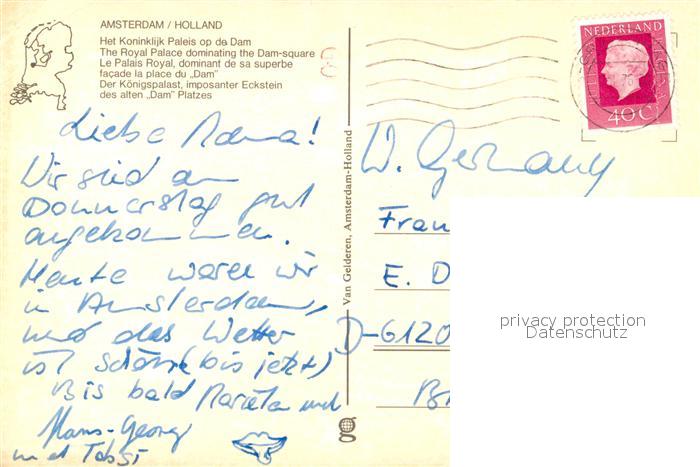 AMSTERDAM / HOLLAND
Het Koninklijk Paleis op de Dam
The Royal Palace dominating the Dam-square
Le Palais Royal, dominant de sa superbe
façade la place du „Dam"
Der Königspalast, imposanter Eckstein
des alten „Dam" Platzes
NEDERLAND
40 C
Liebe Mama!
Wir sind am
Donnerstag gut
angekommen.
Heute waren wir
in Amsterdam,
und das Wetter
ist schön (bis jetzt)
Bis bald Marita und
Hans-Georg
und Tobsi
Van Gelderen, Amsterdam-Holland
W. Germany
Frau
E. D
D-6120
privacy protection
Datenschutz